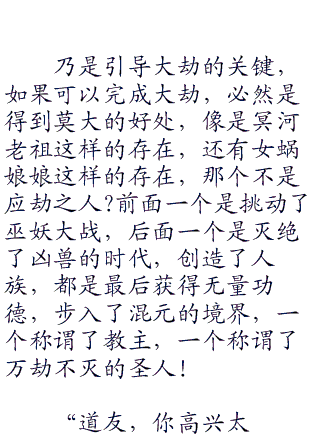 乃是引导大劫的关键，
如果可以完成大劫，必然是
得到莫大的好处，像是冥河
老祖这样的存在，还有女蜗
娘娘这样的存在，那个不是
应劫之人?前面一个是挑动了
巫妖大战，后面一个是灭绝
了凶兽的时代，创造了人
族，都是最后获得无量功
德，步入了混元的境界，一
个称谓了教主，一个称谓了
万劫不灭的圣人！
“道友，你高兴太